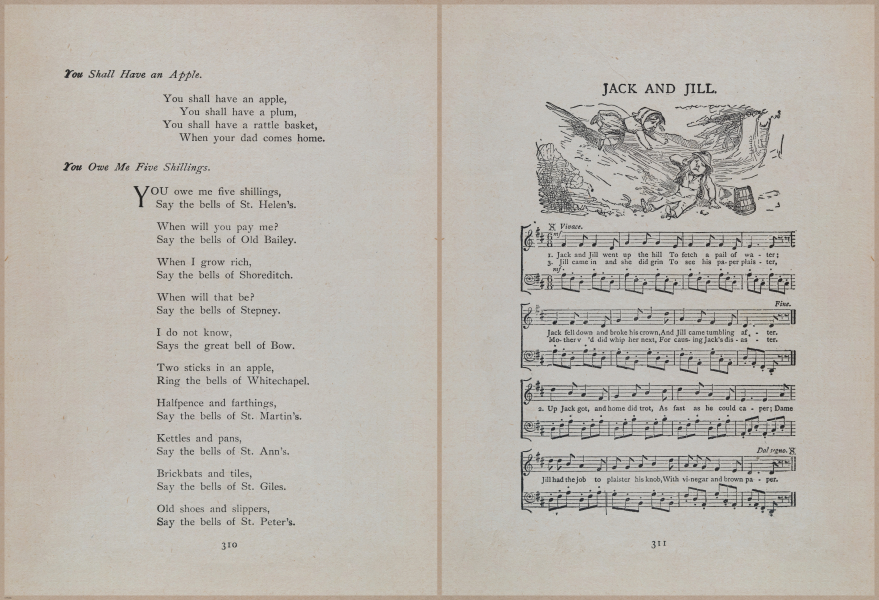 You Shall Have an Apple.
You shall have an apple,
You shall have a plum,
You shall have a rattle basket,
When your dad comes home.
You Owe Me Five Shillings.
YOU owe me five shillings,
Say the bells of St. Helen's.
When will you pay me?
Say the bells of Old Bailey.
When I grow rich,
Say the bells of Shoreditch.
When will that be?
Say the bells of Stepney.
I do not know,
Says the great bell of Bow.
Two sticks in an apple,
Ring the bells of Whitechapel.
Halfpence and farthings,
Say the bells of St. Martin's.
Kettles and pans,
Say the bells of St. Ann's.
Brickbats and tiles,
Say the bells of St. Giles.
Old shoes and slippers,
Say the bells of St. Peter's.
310
JACK AND JILL.
Vivace.
mf
1. Jack and Jill went up the hill To fetch a pail of wa - ter;
3. Jill came in and she did grin To see his pa-per plais - ter,
mf
Fine.
Jack fell down and broke his crown, And Jill came tumbling af - - ter.
Mo-ther 'd did whip her next, For caus-ing Jack's dis - as - ter.
2. Up Jack got, and home did trot, As fast as he could ca - per; Dame
Dal segno.
Jill had the job to plaister his knob, With vi-negar and brown pa - per.
311